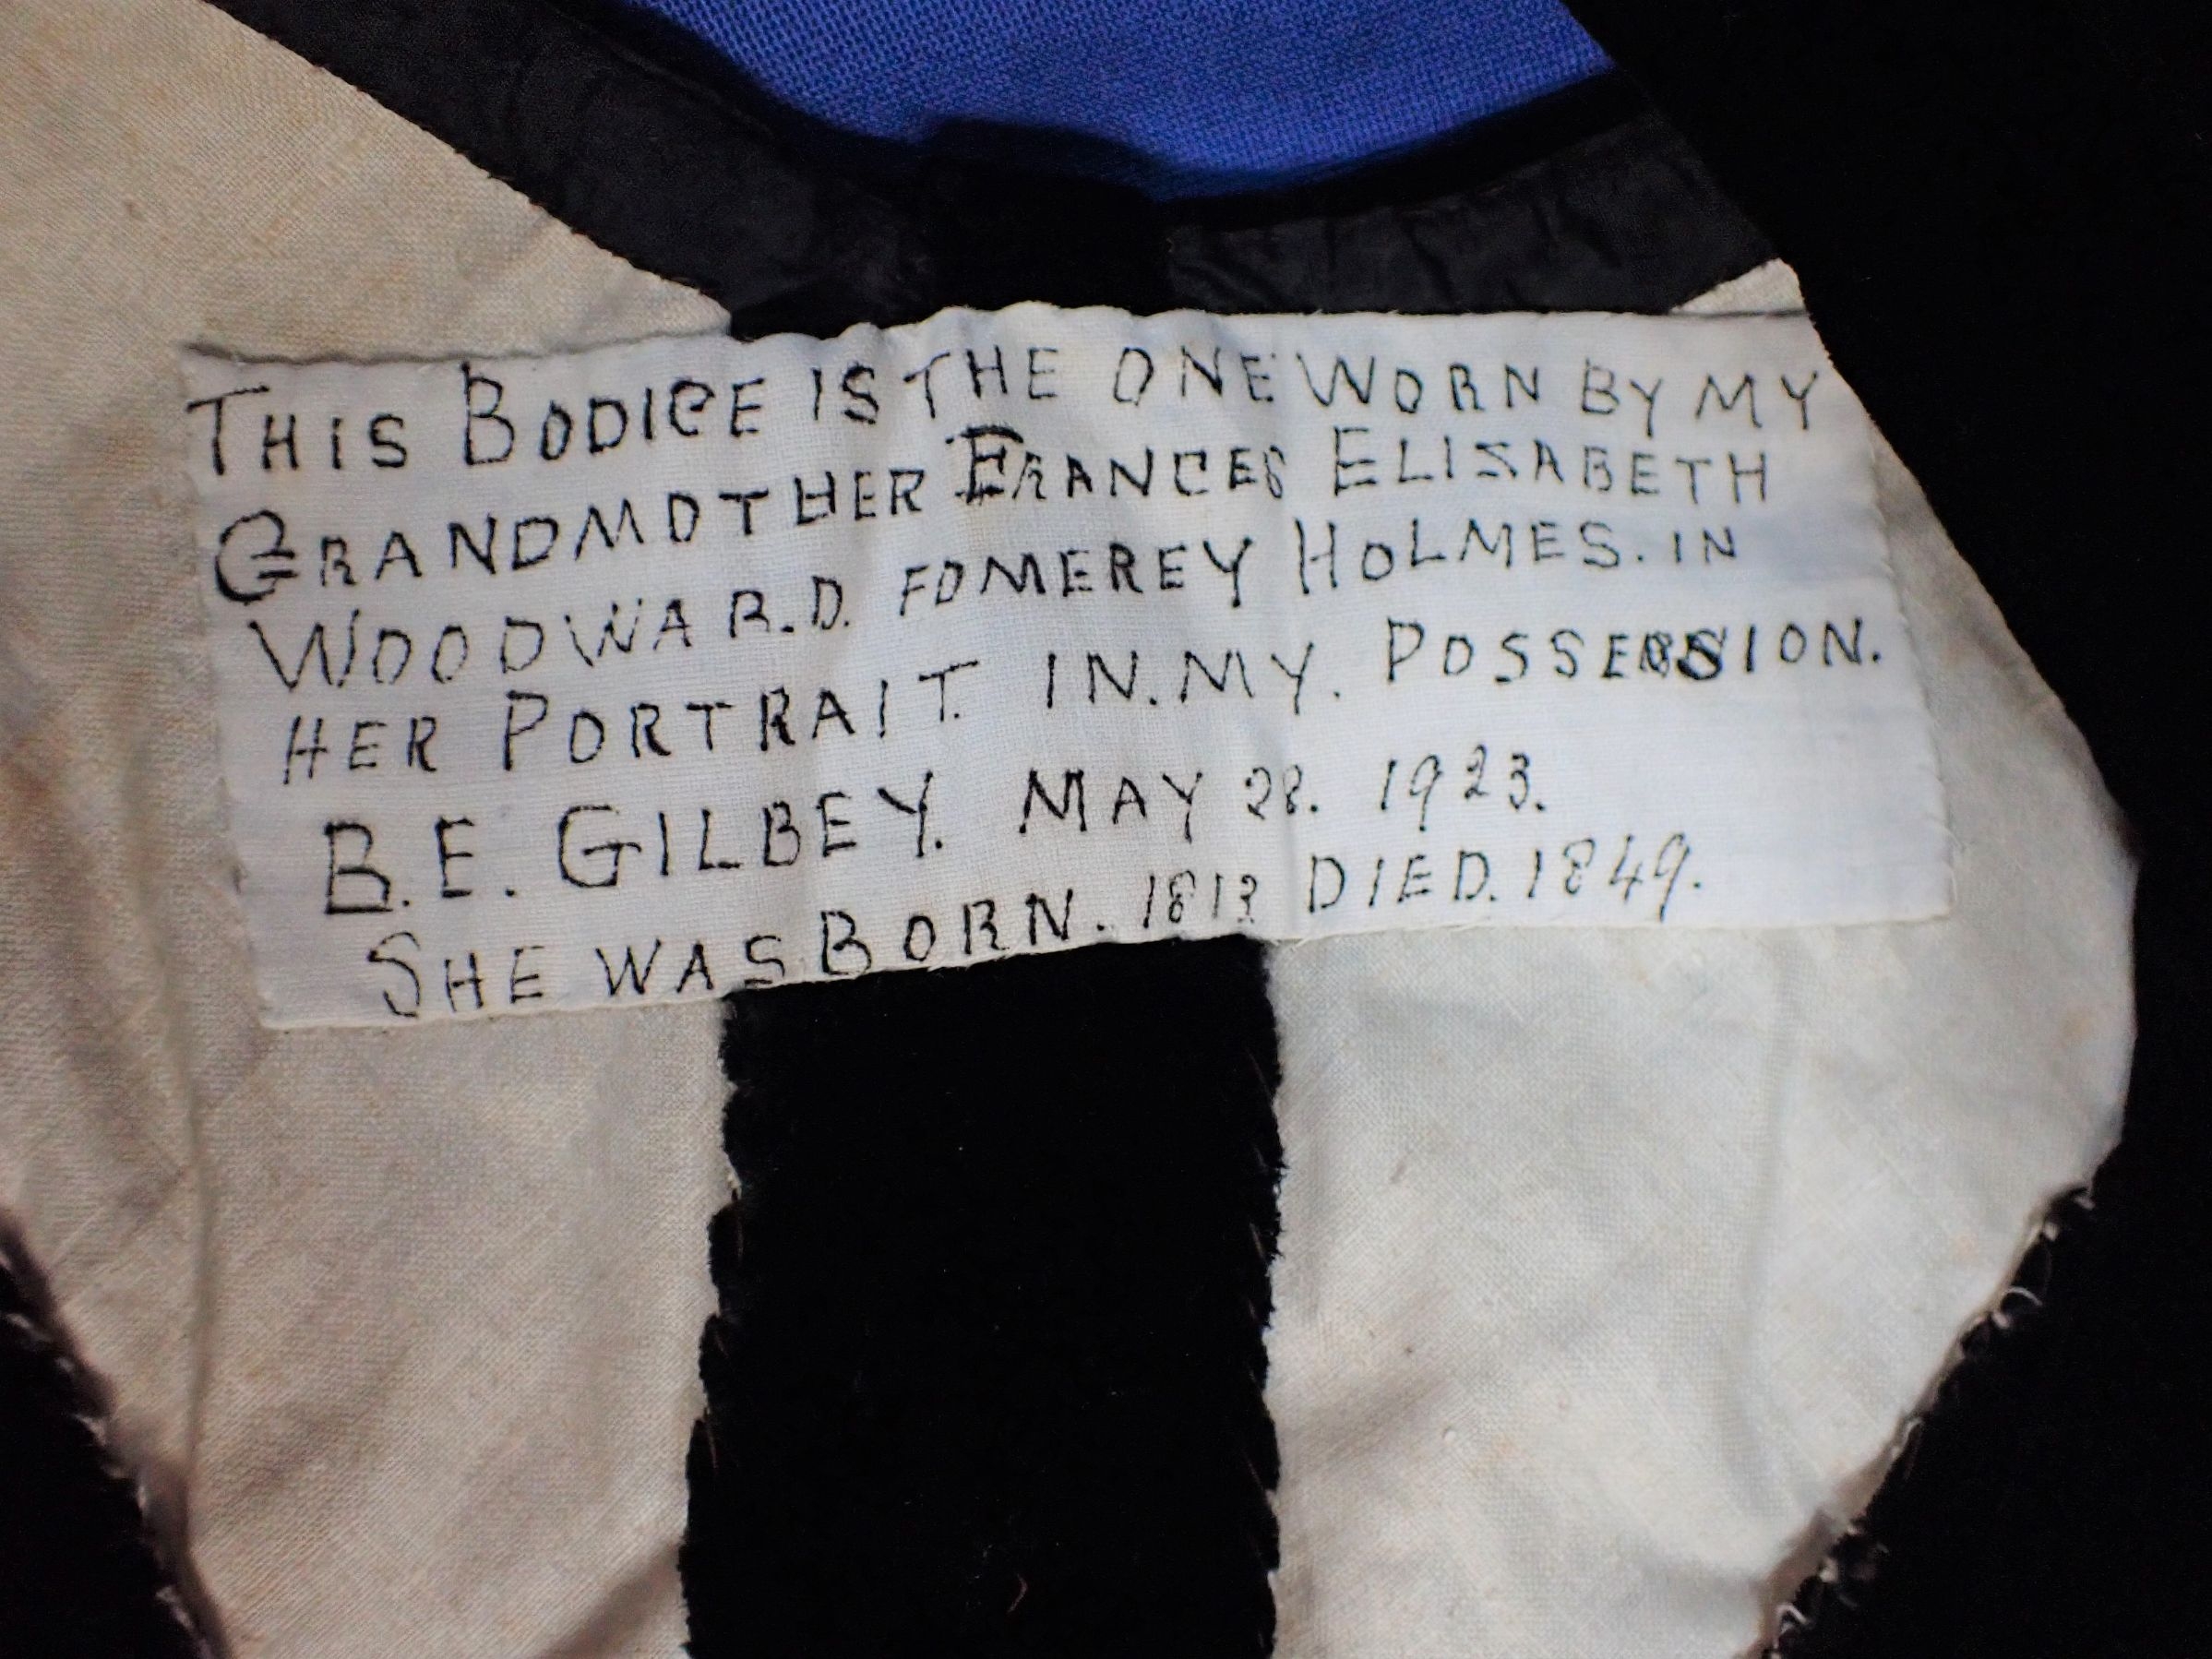 THIS BODICE IS THE ONE WORN BY MY
GRANDMOTHER FRANCES ELISABETH
WOODWAR.D. FOMEREY HOLMES. IN
HER PORTRAIT. IN. MY. POSSESSION.
B. E. GILBEY. MAY 28. 1923.
SHE WAS BORN. 1813 DIED. 1849.